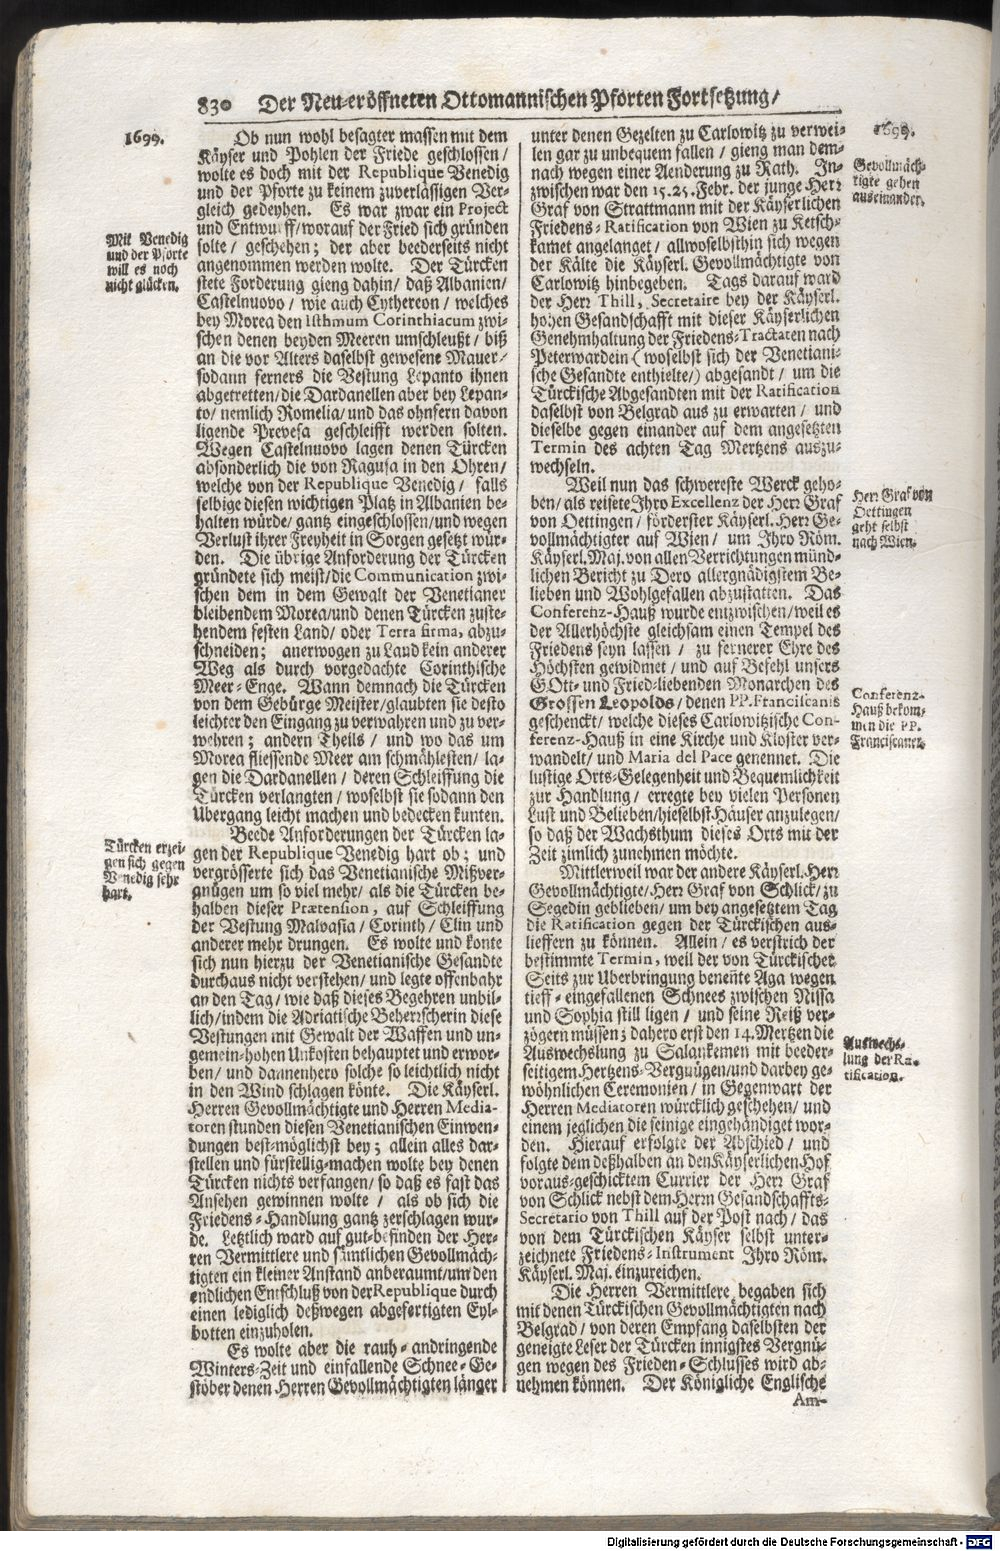 830 Der Neu-eröffneten Ottomannischen Pforten Fortsetzung/
1699.
Ob nun wohl besagter massen mit dem
Käyser und Pohlen der Friede geschlossen/
wolte es doch mit der Republique Venedig
und der Pforte zu keinem zuverlässigen Ver-
gleich gedeyhen. Es war zwar ein Project
und Entwurff/worauf der Fried sich gründen
solte/ geschehen; der aber beederseits nicht
angenommen werden wolte. Der Türcken
stete Forderung gieng dahin/ daß Albanien/
Castelnuovo/ wie auch Cythereon/ welches
bey Morea den Isthmum Corinthiacum zwi-
schen denen beyden Meeren umschleußt/ biß
an die vor Alters daselbst gewesene Mauer/
sodann ferners die Vestung Lepanto ihnen
abgetretten/die Dardanellen aber bey Lepan-
to/ nemlich Romelia/und das ohnfern davon
ligende Prevesa geschleifft werden solten.
Wegen Castelnuovo lagen denen Türcken
absonderlich die von Ragusa in den Ohren/
welche von der Republique Venedig/ falls
selbige diesen wichtigen Platz in Albanien be-
halten würde/ gantz eingeschlossen/und wegen
Verlust ihrer Freyheit in Sorgen gesetzt wür-
den. Die übrige Anforderung der Türcken
gründete sich meist/die Communication zwi-
schen dem in dem Gewalt der Venetianer
bleibendem Morea/und denen Türcken zuste-
hendem festen Land/ oder Terra firma, abzu-
schneiden; anerwogen zu Land kein anderer
Weg als durch vorgedachte Corinthische
Meer-Enge. Wann demnach die Türcken
von dem Gebürge Meister/glaubten sie desto
leichter den Eingang zu verwahren und zu ver-
wehren; andern Theils/ und wo das um
Morea fliessende Meer am schmählesten/ la-
gen die Dardanellen/ deren Schleiffung die
Türcken verlangten/ woselbst sie sodann den
Ubergang leicht machen und bedecken kunten.
Beede Anforderungen der Türcken la-
gen der Republique Venedig hart ob; und
vergrösserte sich das Venetianische Mißver-
gnügen um so viel mehr/ als die Türcken be-
halben dieser Prætension, auf Schleiffung
der Vestung Malvasia/ Corinth/ Clin und
anderer mehr drungen. Es wolte und konte
sich nun hierzu der Venetianische Gesandte
durchaus nicht verstehen/ und legte offenbahr
an den Tag/ wie daß dieses Begehren unbil-
lich/indem die Adriatische Beherrscherin diese
Vestungen mit Gewalt der Waffen und un-
gemein-hohen Unkosten behauptet und erwor-
ben/ und dannenhero solche so leichtlich nicht
in den Wind schlagen könte. Die Käyserl.
Herren Gevollmächtigte und Herren Media-
toren stunden diesen Venetianischen Einwen-
dungen best-möglichst bey; allein alles dar-
stellen und fürstellig-machen wolte bey denen
Türcken nichts verfangen/ so daß es fast das
Ansehen gewinnen wolte/ als ob sich die
Friedens-Handlung gantz zerschlagen wur-
de. Letztlich ward auf gut-befinden der Her-
ren Vermittlere und sämtlichen Gevollmäch-
tigten ein kleiner Anstand anberaumt/um den
endlichen Entschluß von der Republique durch
einen lediglich deßwegen abgefertigten Eyl-
botten einzuholen.
Es wolte aber die rauh-andringende
Winters-Zeit und einfallende Schnee-Ge-
stöber denen Herren Gevollmächtigten länger
Mit Venedig
und der Pforte
will es noch
nicht glücken.
Türcken erzei-
gen sich gegen
Venedig sehr
hart.
unter denen Gezelten zu Carlowitz zu verwei-
len gar zu unbequem fallen/ gieng man dem-
nach wegen einer Aenderung zu Rath. In-
zwischen war den 15.25. Febr. der junge Herr
Graf von Strattmann mit der Käyserlichen
Friedens-Ratification von Wien zu Ketsch-
kamet angelanget/ allwoselbsthin sich wegen
der Kälte die Käyserl. Gevollmächtigte von
Carlowitz hinbegeben. Tags darauf ward
der Herr Thill, Secretaire bey der Käyserl.
hohen Gesandschafft mit dieser Käyserlichen
Genehmhaltung der Friedens-Tractaten nach
Peterwardein (woselbst sich der Venetiani-
sche Gesandte enthielte/) abgesandt/ um die
Türckische Abgesandten mit der Ratification
daselbst von Belgrad aus zu erwarten/ und
dieselbe gegen einander auf dem angesetzten
Termin des achten Tag Mertzens auszu-
wechseln.
Weil nun das schwereste Werck geho-
ben/ als reisete Ihro Excellenz der Herr Graf
von Oettingen/ förderster Käyserl. Herr Ge-
vollmächtigter auf Wien/ um Ihro Röm.
Käyserl. Maj. von allen Verrichtungen münd-
lichen Bericht zu Dero allergnädigstem Be-
lieben und Wohlgefallen abzustatten. Das
Conferenz-Hauß wurde entzwischen/weil es
der Allerhöchste gleichsam einen Tempel des
Friedens seyn lassen/ zu fernerer Ehre des
Höchsten gewidmet/ und auf Befehl unsers
GOtt- und Fried-liebenden Monarchen des
Grossen Leopolds/ denen PP. Franciscanis
geschenckt/ welche dieses Carlowitzische Con-
ferenz-Hauß in eine Kirche und Kloster ver-
wandelt/ und Maria del Pace genennet. Die
lustige Orts-Gelegenheit und Bequemlichkeit
zur Handlung/ erregte bey vielen Personen
Lust und Belieben/hieselbst Häuser anzulegen/
so daß der Wachsthum dieses Orts mit der
Zeit zimlich zunehmen möchte.
Mittlerweil war der andere Käyserl. Herr
Gevollmächtigte/Herr Graf von Schlick/ zu
Segedin geblieben/ um bey angesetztem Tag
die Ratification gegen der Türckischen aus-
lieffern zu können. Allein/ es verstrich der
bestimmte Termin, weil der von Türckischer
Seits zur Uberbringung beneñte Aga wegen
tieff-eingefallenen Schnees zwischen Nissa
und Sophia still ligen/ und seine Reiß ver-
zögern müssen; dahero erst den 14. Mertzen die
Auswechslung zu Salankemen mit beeder-
seitigem Hertzens-Vergnügen/und darbey ge-
wöhnlichen Ceremonien/ in Gegenwart der
Herren Mediatoren würcklich geschehen/ und
einem jeglichen die seinige eingehändiget wor-
den. Hierauf erfolgte der Abschied/ und
folgte dem deßhalben an den Käyserlichen Hof
voraus-geschicktem Currier der Herr Graf
von Schlick nebst dem Herrn Gesandschaffts-
Secretario von Thill auf der Post nach/ das
von dem Türckischen Käyser selbst unter-
zeichnete Friedens-Instrument Ihro Röm.
Käyserl. Maj. einzureichen.
Die Herren Vermittlere begaben sich
mit denen Türckischen Gevollmächtigten nach
Belgrad/ von deren Empfang daselbsten der
geneigte Leser der Türcken innigstes Vergnü-
gen wegen des Frieden-Schlusses wird ab-
nehmen können. Der Königliche Englische
Am-
1699.
Gevollmäch-
tigte gehen
auseinander.
Herr Graf von
Oettingen
geht selbst
nach Wien.
Conferenz-
Hauß bekom-
men die PP.
Franciscaner.
Auswechs-
lung der Ra-
tification.
Digitalisierung gefördert durch die Deutsche Forschungsgemeinschaft - DFG